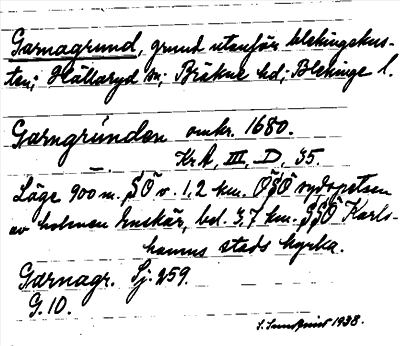 Garnagrund, grund utanför blekingekus-
ten; Hällaryd sn; Bräkne hd; Blekinge l.
Garngrúnden omkr. 1680.
Kr k, III, D, 35.
Läge 900 m. SÖ v. 1,2 km. ÖSÖ sydspetsen
av holmen Enskär, bel. 3,7 km. SSÖ Karls-
hamns stads kyrka.
Garnagr. Sj. 259.
G. 10.
S. Sundqvist 1938.